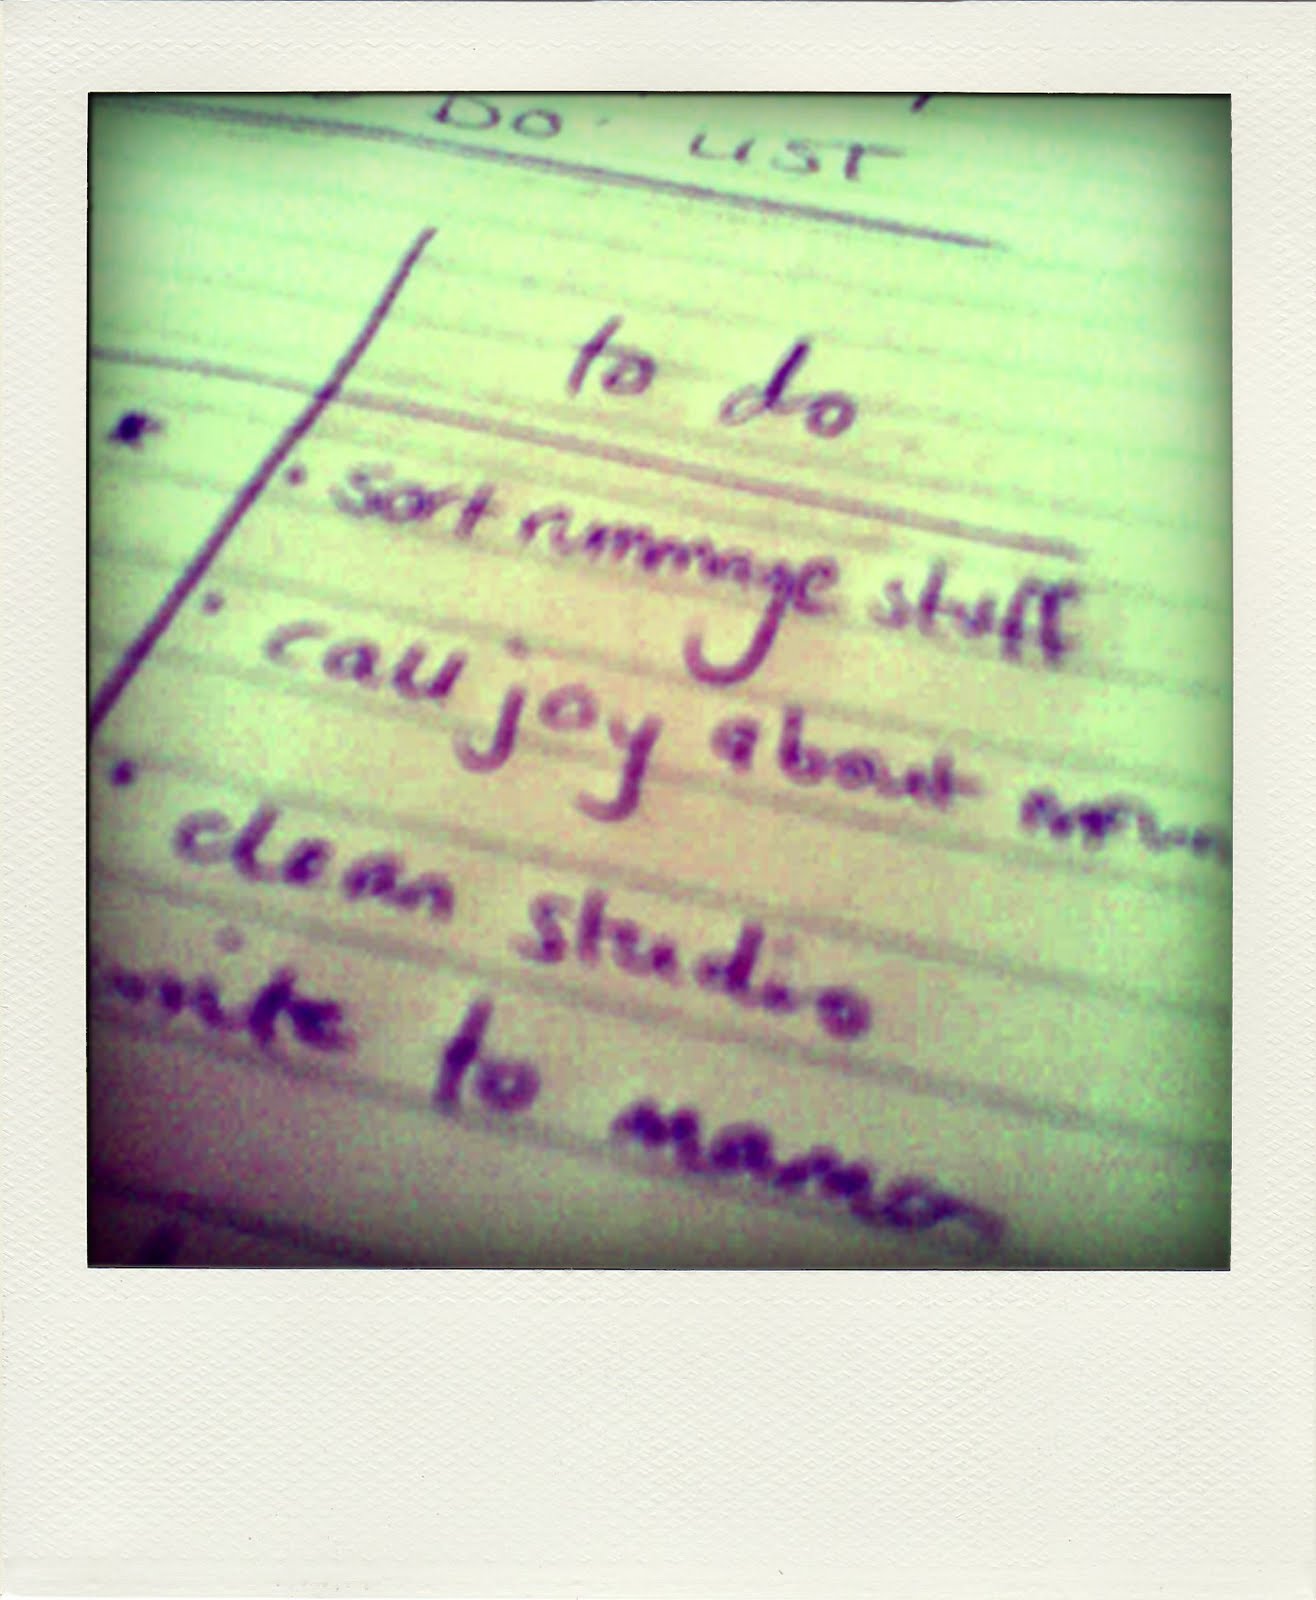 DO LIST
to do
• sort rummage stuff
• call joy about
• clean studio
write to mama